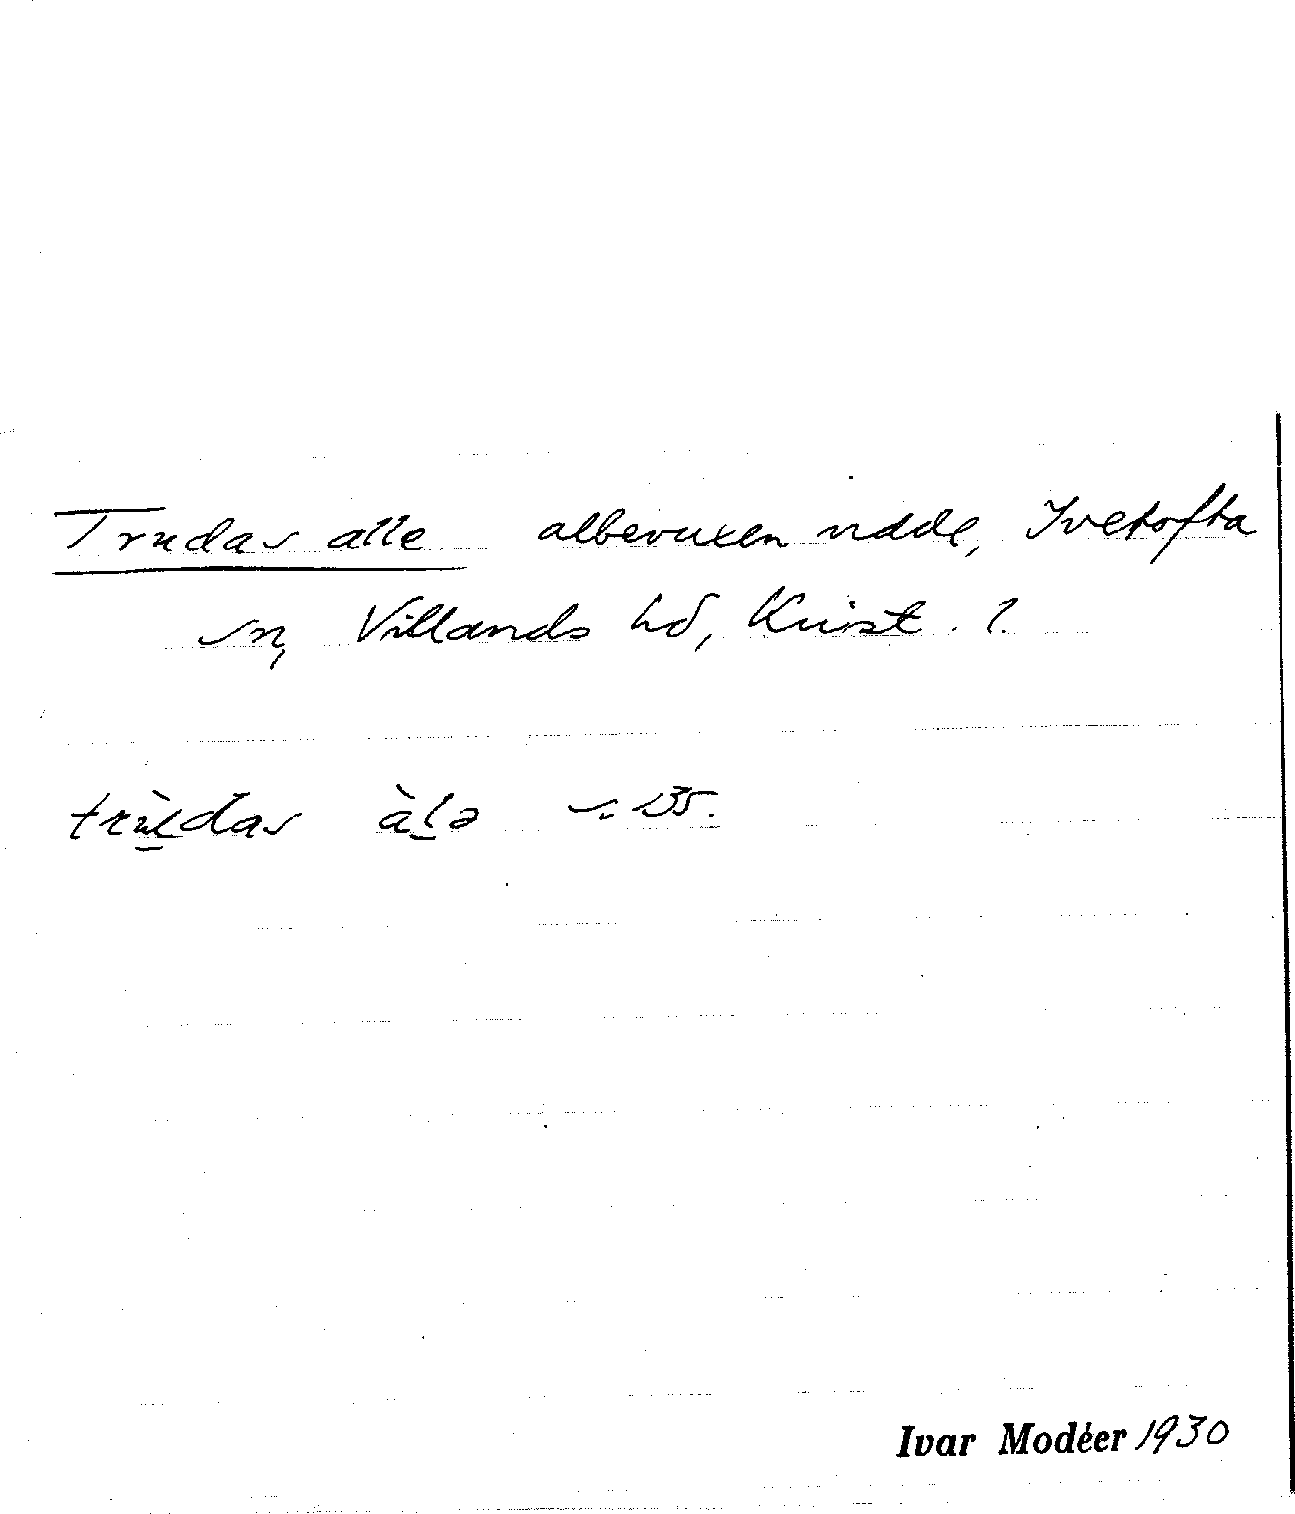 Trudas alle albevuxen udde, Ivetofta
sn, Villands hd, Krist. l.
trùdas àlə
Ivar Modéer 1930